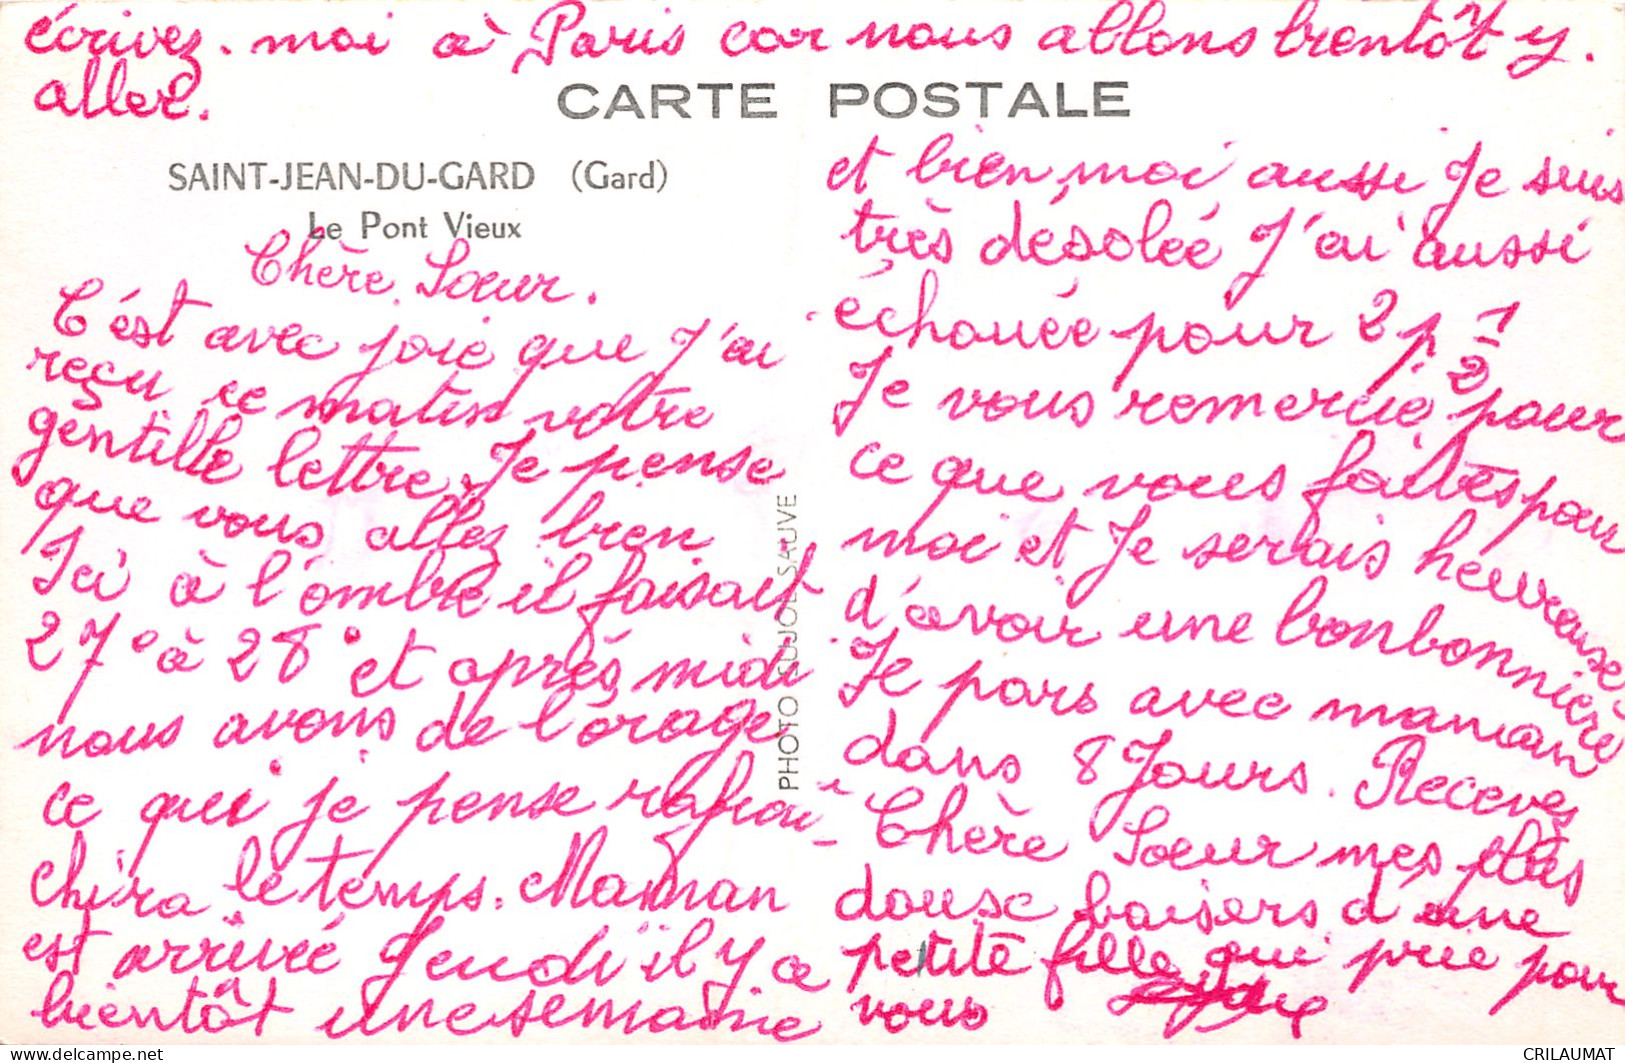 écrivez-moi à Paris car nous allons bientôt y.
aller.
CARTE POSTALE
SAINT-JEAN-DU-GARD (Gard)
Le Pont Vieux
Chère Sœur.
C'est avec joie que J'ai
reçu ce matin votre
gentille lettre. Je pense
que vous allez bien
Ici à l'ombre il faisait
27° à 28° et après midi
nous avons de l'orage
ce qui je pense rafraî-
chira le temps. Maman
est arrivée Jeudi il y a
bientôt une semaine
PHOTO SAUVE
et bien moi aussi Je suis
très désolée J'ai aussi
échouée pour 2 p 1/2
Je vous remercie pour
ce que vous faites pour
moi et Je serais heureuse
d'avoir une bonbonnière
Je pars avec maman
dans 8 Jours. Recevez
Chère Sœur mes plus
douse baisers d'une
petite fille qui prie pour
vous
CRILAUMAT